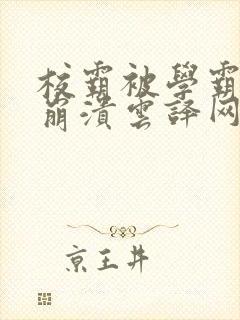 校霸被學霸
崩潰雲譯网
京王井